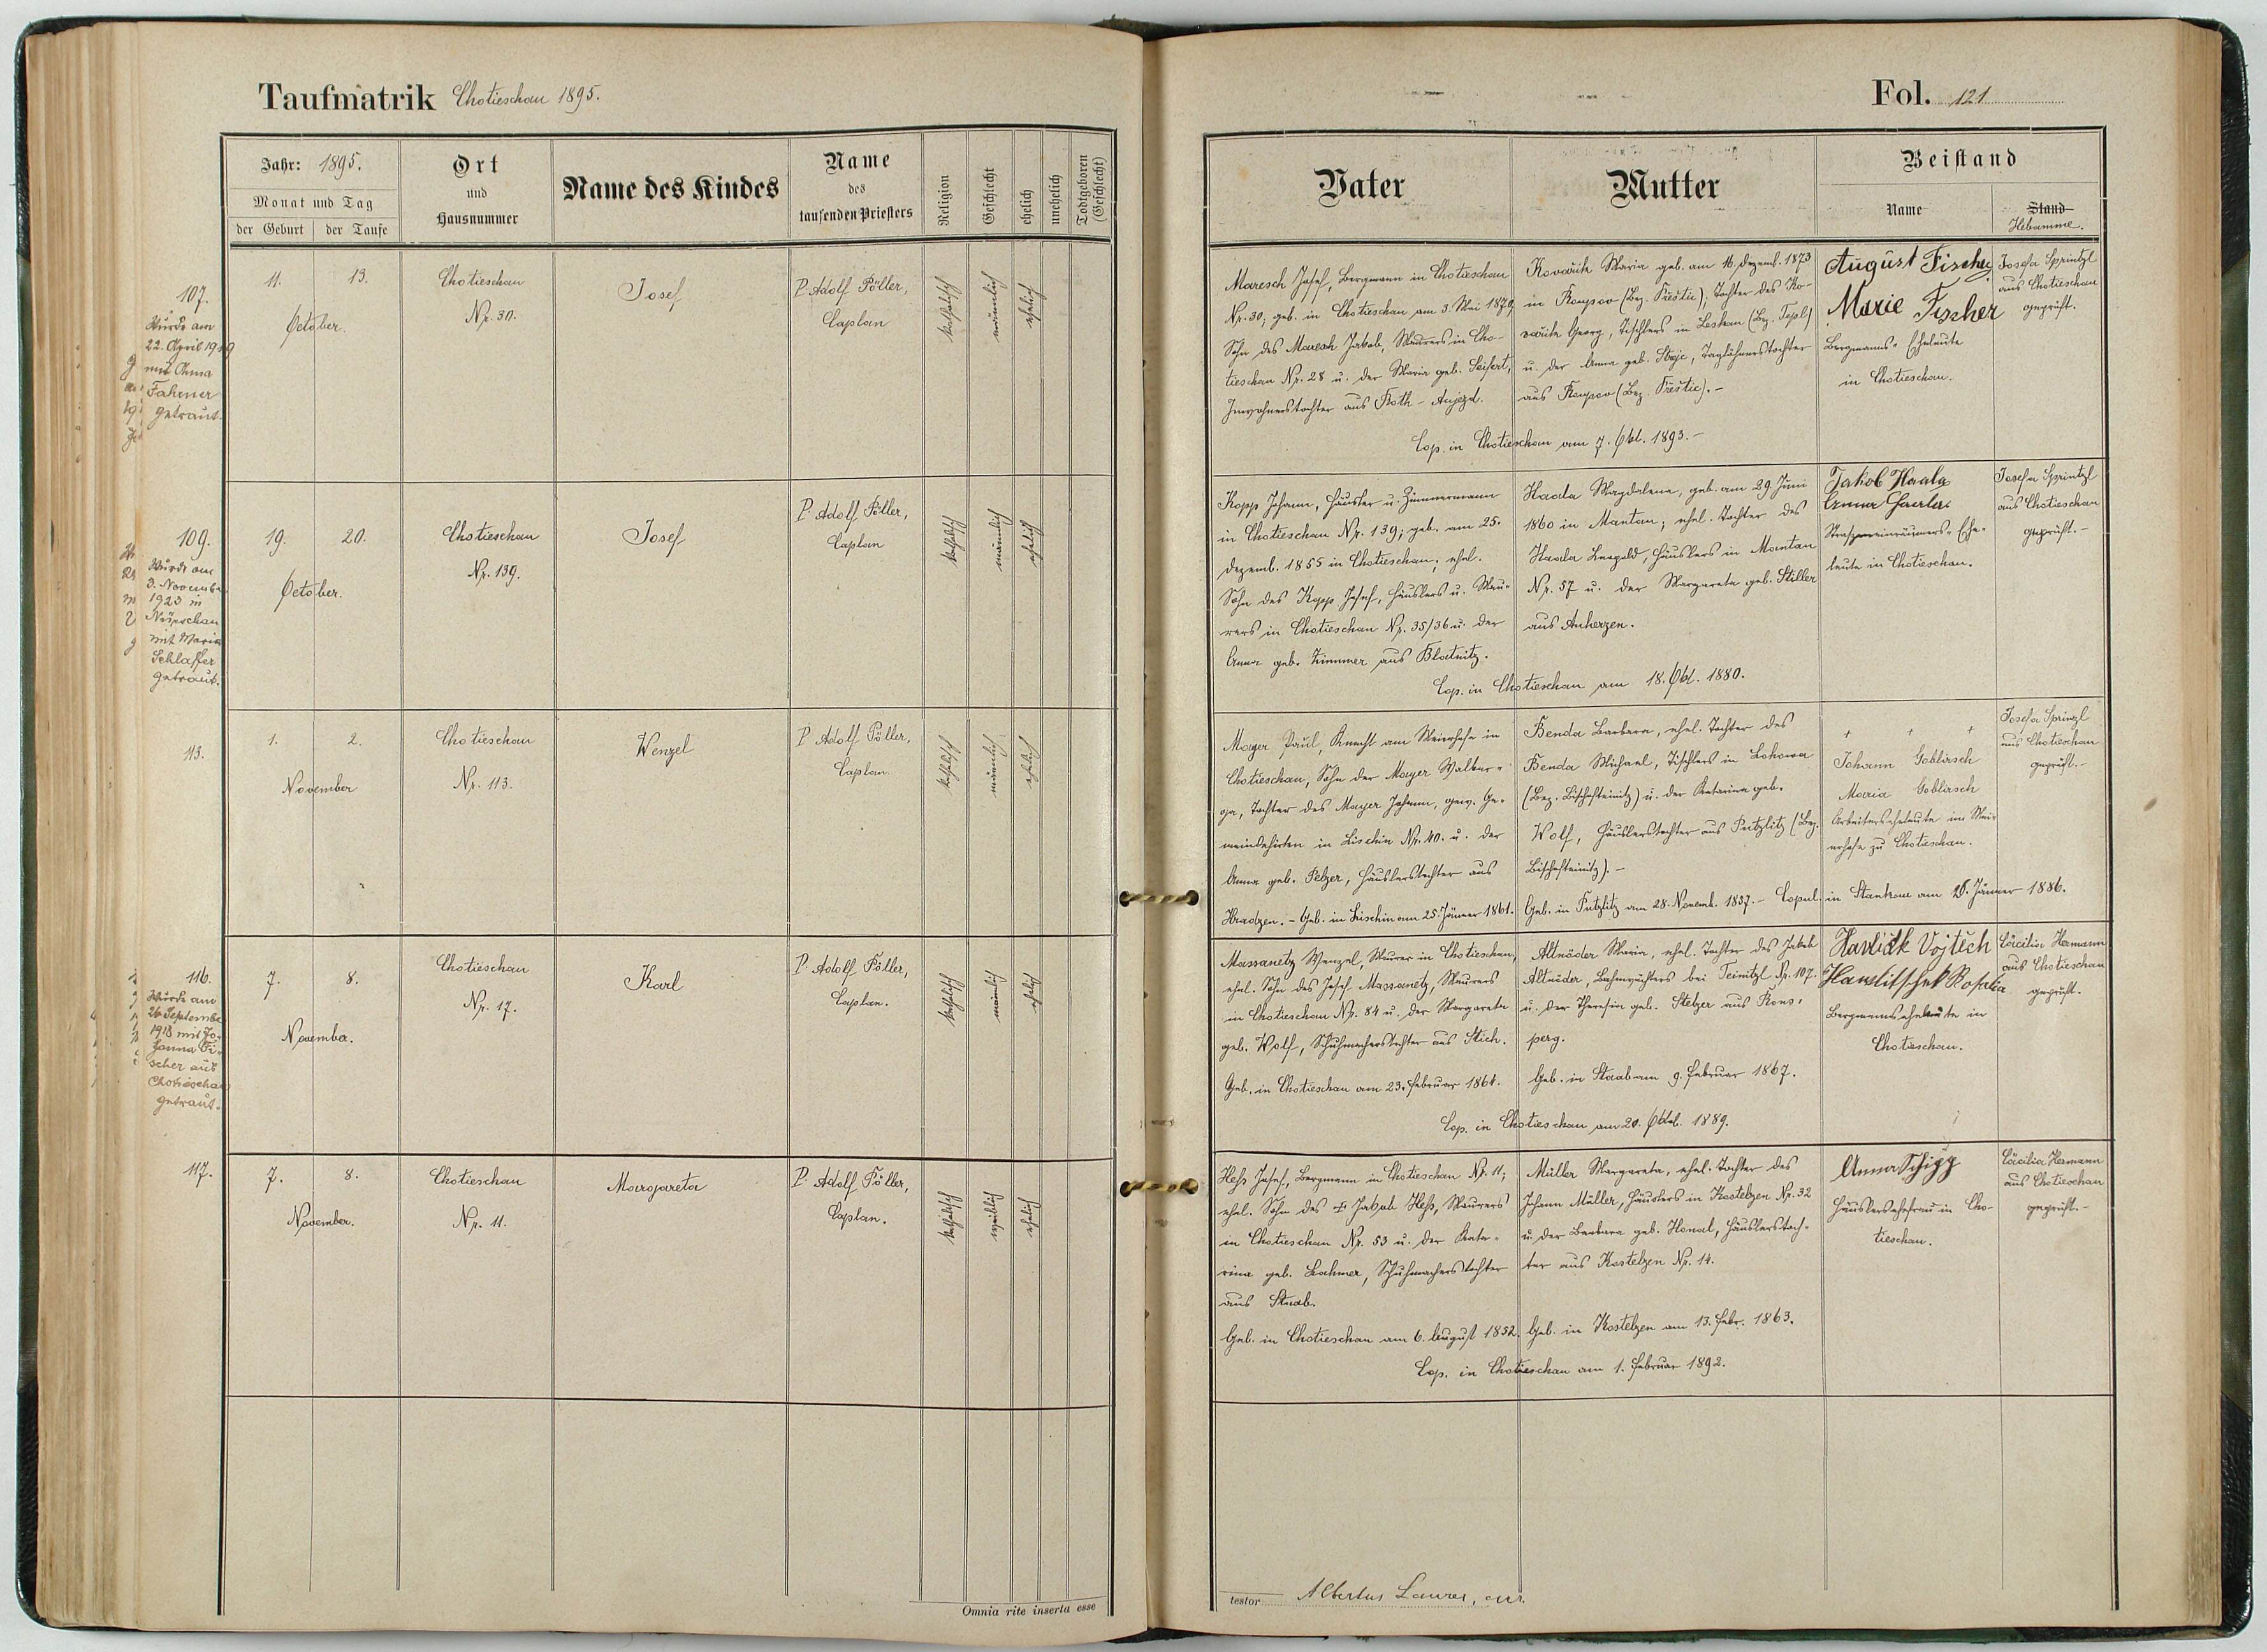 Taufmatrik Chotieschau 1895.
Jahr: 1895.
Monat und Tag
der Geburt
der Taufe
Ort
und
Hausnummer
Name des Kindes
Name
des
taufenden Priesters
Religion
Geschlecht
ehelich
unehelich
Todtgeboren
(Geschlecht)
107.
Wurde am
22. April 1919
mit Anna
Fahrner
getraut.
11.
13.
October.
Chotieschau
Nr. 30.
Josef
P. Adolf Pöller,
Caplan
katholisch
männlich
ehelich
109.
Wurde am
3. November
1923 in
Nürschan
mit Maria
Schlaffer
getraut.
19.
20.
October.
Chotieschau
Nr. 139.
Josef
P. Adolf Pöller,
Caplan
katholisch
männlich
ehelich
113.
1.
2.
November
Chotieschau
Nr. 113.
Wenzel
P. Adolf Pöller,
Caplan.
katholisch
männlich
ehelich
116.
Wurde am
26. September
1918 mit Jo-
hanna Fi-
scher aus
Chotieschau
getraut.
7.
8.
November.
Chotieschau
Nr. 17.
Karl
P. Adolf Pöller,
Caplan.
katholisch
männlich
ehelich
117.
7.
8.
November.
Chotieschau
Nr. 11.
Margareta
P. Adolf Pöller,
Caplan.
katholisch
weiblich
ehelich
Omnia rite inserta esse
Fol. 121
Vater
Mutter
Beistand
Name
Stand
Hebamme.
Maresch Josef, Bergmann in Chotieschau
Nr. 30, geb. in Chotieschau am 3. Mai
Sohn des Maresch Jakob, Maurers in Cho-
tieschau Nr. 28 u. der Maria geb. Seifert,
Inwohnerstochter aus Roth-Aujezd.
Maria geb. am 16. Dezemb. 1873
in (Bez. Přestic); Tochter des Ko-
Georg, Tischlers in (Bez. Tepl)
u. der Anna geb. Taglöhnerstochter
aus (Bez. Přestic).-
Cop. in Chotieschau am 7. Okt. 1893.-
August Fischer
Marie Fischer
Bergmanns-Eheleute
in Chotieschau.
Josefa Sprintzl
aus Chotieschau
geprüft.
Kopp Johann, Häusler u. Zimmermann
in Chotieschau Nr. 139; geb. am 25.
Dezemb. 1855 in Chotieschau; ehel.
Sohn des Kopp Josef, Häuslers u. Mau-
rers in Chotieschau Nr. 35/36 u. der
Anna geb. Zimmer aus Blatnitz.
Haala Magdalena, geb. am 29. Juni
1860 in Mantau; ehel. Tochter des
Haala Leopold, Häuslers in Mantau
Nr. 57 u. der Margareta geb. Stiller
aus Auherzen.
Cop. in Chotieschau am 18. Okt. 1880.
Jakob Haala
Anna Haala
Straßeneinräumers-Ehe-
leute in Chotieschau.
Josefa Sprintzl
aus Chotieschau
geprüft.-
Mayer Paul, Knecht am Meierhofe in
Chotieschau, Sohn der Mayer Walbur-
ga, Tochter des Mayer Johann, gew. Ge-
meindehirten in Lischin Nr. 40. u. der
Anna geb. Pelzer, Häuslerstochter aus
Hradzen.- Geb. in Lischin am 25. Jänner 1861.
Benda Barbara, ehel. Tochter des
Benda Michael, Tischlers in Lohowa
(Bez. Bischofteinitz) u. der Katarina geb.
Wolf, Häuslerstochter aus Putzlitz (Bez.
Bischofteinitz).-
Geb. in Putzlitz am 28. Novemb. 1857.- Copul. in Stankau am 26. Jänner 1886.
+ + +
Johann Goblirsch
Maria Goblirsch
Arbeiterseheleute im Mei-
erhofe zu Chotieschau.
Josefa Sprinzl
aus Chotieschau
geprüft.-
Massanetz Wenzel, Maurer in Chotieschau,
ehel. Sohn des Josef Massanetz, Maurers
in Chotieschau Nr. 84 u. der Margareta
geb. Wolf, Schuhmacherstochter aus Stich.
Geb. in Chotieschau am 23. Februar 1864.
Altnöder Maria, ehel. Tochter des Jakob
Altnöder, Bahnwächters bei Teinitzl Nr. 107.
u. der Theresia geb. Stelzer aus Rons-
perg.
Geb. in Staab am 9. Februar 1867.
Cop. in Chotieschau am 20. Oktob. 1889.
Havliček Vojtěch
Hawlitschek Rosalia
Bergmannseheleute in
Chotieschau.
Cäcilia Hermann
aus Chotieschau
geprüft.
Heß Josef, Bergmann in Chotieschau Nr. 11;
ehel. Sohn des Jakob Heß, Maurers
in Chotieschau Nr. 53 u. der Kata-
rina geb. Lochmer, Schuhmacherstochter
aus Staab.
Geb. in Chotieschau am 6. August 1852.
Müller Margareta, ehel. Tochter des
Johann Müller, Häuslers in Kostelzen Nr. 32
u. der Barbara geb. Honal, Häuslerstoch-
ter aus Kostelzen Nr. 14.
Geb. in Kostelzen am 13. Febr. 1863.
Cop. in Chotieschau am 1. Februar 1892.
Anna Schigg
Häuslersehefrau in Cho-
tieschau.
Cäcilia Hermann
aus Chotieschau
geprüft.-
testor Albertus Laurer,